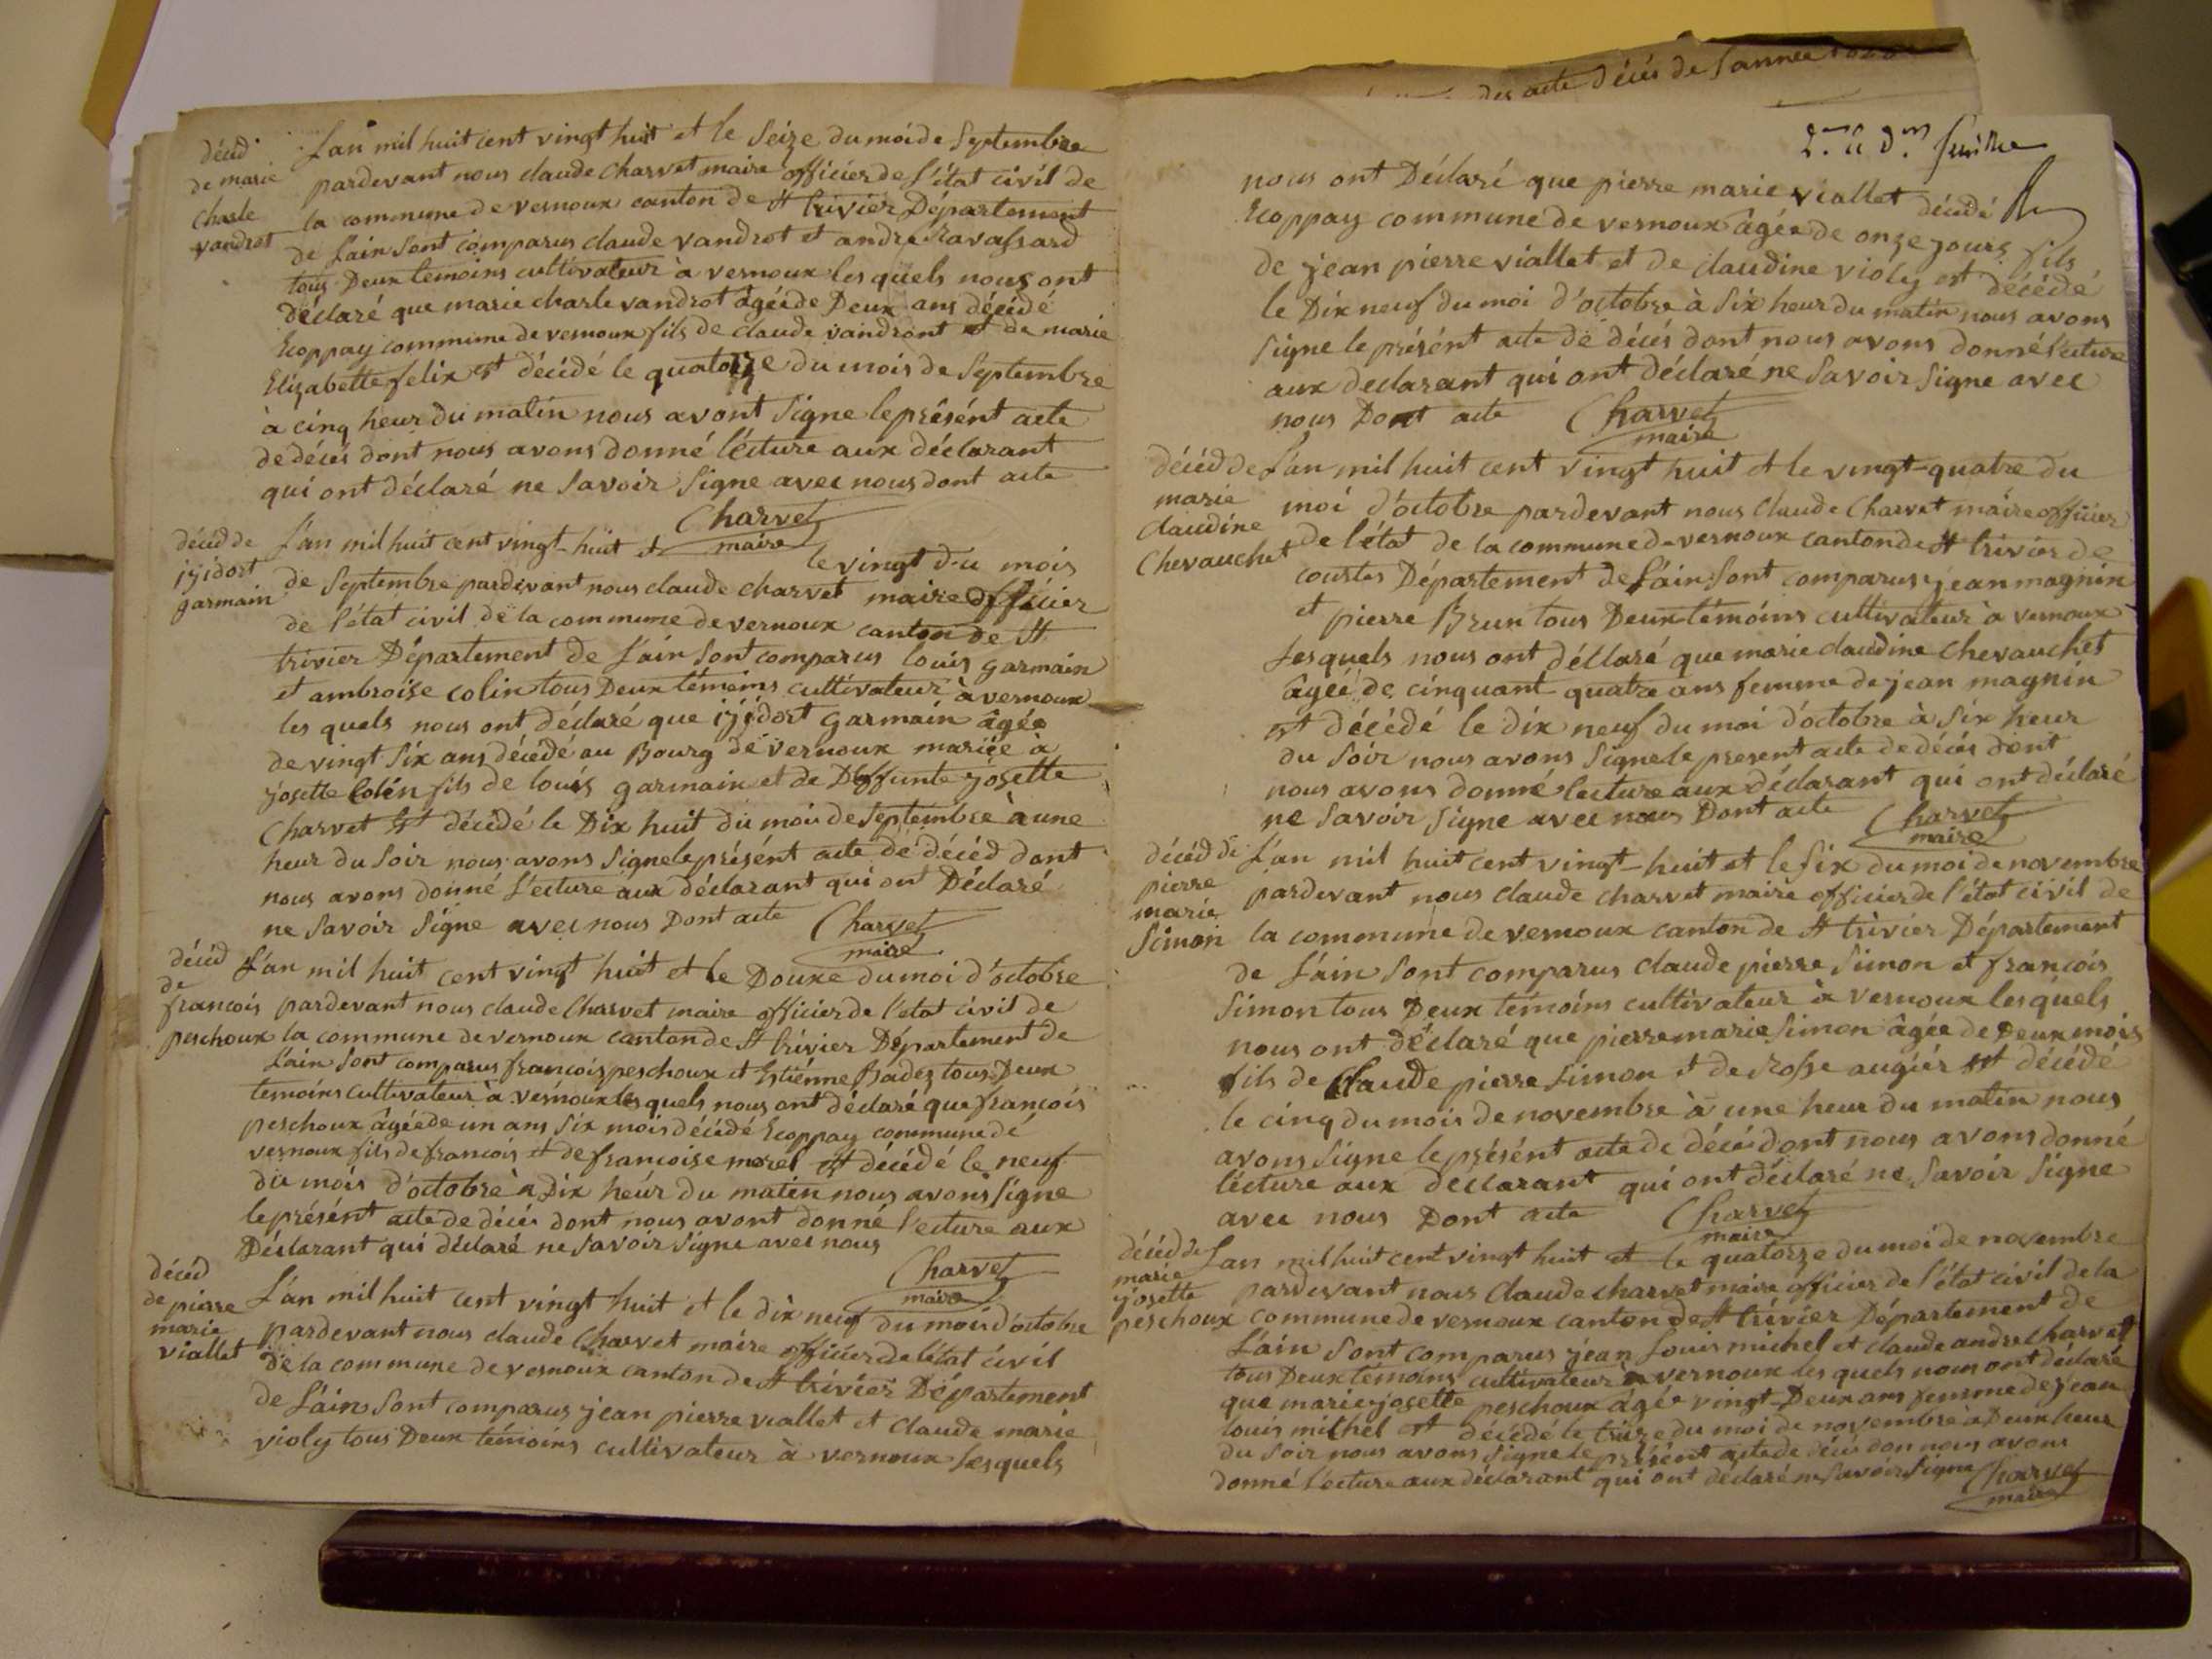 décéd
de marie
charle
vandrot
L'an mil huit cent vingt huit et le Seize du moi de Septembre
pardevant nous claude Charvet maire officier de l'état civil de
la commune de vernoux canton de St trivier Département
de L'ain Sont comparus claude vandrot et andre Ravassard
tous Deux temoins cultivateur à vernoux les quels nous ont
déclaré que marie charle vandrot âgée de Deux ans décédé
Ecoppay commune de vernoux fils de claude vandront et de marie
Elizabette felix est décédé le quatorze du mois de Septembre
à cinq heur du matin nous avont Signe le présént acte
de décés dont nous avons donné l'écture aux déclarant
qui ont déclaré ne Savoir Signe avec nous dont acte
Charvet
maire
décéd de
izidort
garmain
L'an mil huit cent vingt-huit et le vingt du mois
de Septembre pardevant nous claude charvet maire officier
de l'état civil de la commune de vernoux canton de St
trivier Département de L'ain Sont comparus louis garmain
et ambroise colin tous Deux témoins cultivateur à vernoux
les quels nous ont déclaré que izidort garmain âgée
de vingt Six ans décédé au Bourg de vernoux mariée à
josette Colin fils de louis garmain et de Deffunte josette
Charvet est décédé le Dix huit du moi de Septembre à une
heur du Soir nous avons Signe le présént acte de décéd dont
nous avons donné l'ecture aux déclarant qui ont Déclaré
ne Savoir Signe avec nous Dont acte
Charvet
maire
décéd
de
francois
peschoux
L'an mil huit cent vingt huit et le Douxe du moi d'octobre
pardevant nous claude Charvet maire officier de l'etat civil de
la commune de vernoux canton de St trivier Département de
L'ain Sont comparus francois peschoux et Etiénne Badez tous Deux
temoins cultivateur à vernoux les quels nous ont déclaré que francois
peschoux âgée de un ans Six mois décédé Ecoppay commune dé
vernoux fils de francois et de francoise morel est décédé le neuf
du mois d'octobre à Dix heur du matin nous avons Signe
le présént acte de décés dont nous avont donné l'ecture aux
Déclarant qui déclaré ne Savoir Signe avec nous
Charvet
maire
décéd
de pierre
marie
viallet
L'an mil huit cent vingt huit et le dix neuf du mois d'octobre
pardevant nous claude Charvet maire officier de l'état civil
de la commune de vernoux canton de St trivier Département
de L'ain Sont comparus jean pierre viallet et claude marie
violy tous Deux témoins cultivateur à vernoux Lesquels
des acte Décés de l'année
nous ont Déclaré que pierre marie viallet décédé
Ecoppay commune de vernoux âgée de onze jours fils
de jean pierre viallet et de claudine violy est décédé
le Dix neuf du moi d'octobre à Six heur du matin nous avons
Signe le présént acte de décés dont nous avons donné l'ecture
aux declarant qui ont déclaré ne Savoir Signe avec
nous Dont acte
Charvet
maire
décéd de
marie
claudine
Chevauchet
L'an mil huit cent vingt huit et le vingt-quatre du
moi d'octobre pardevant nous Claude Charvet maire officier
de l'état de la commune de vernoux canton de St trivier de
courtes Département de L'ain Sont comparus jean magnin
et pierre Brun tous Deux témoins cultivateur à vernoux
Lesquels nous ont déclaré que marie claudine Chevauchet
âgée de cinquant quatre ans femme de jean magnin
est décédé le dix neuf du moi d'octobre à Six heur
du Soir nous avons Signe le present acte de décés dont
nous avons donné lecture aux déclarant qui ont déclaré
ne Savoir Signe avec nous Dont acte
Charvet
maire
décéd de
pierre
marie
Simon
L'an mil huit cent vingt-huit et le Six du moi de novembre
pardevant nous claude charvet maire officier de l'état civil de
la commune de vernoux canton de St trivier Département
de L'ain Sont comparus claude pierre Simon et francois
Simon tous Deux témoins cultivateur à vernoux lesquels
nous ont déclaré que pierre marie Simon âgée de Deux mois
fils de Claude pierre Simon et de Rosse augier est décédé
le cinq du mois de novembre à une heur du matin nous
avons Signe le présént acte de décés dont nous avons donné
lécture aux declarant qui ont déclaré ne Savoir Signe
avec nous Dont acte
Charvet
maire
décéd de
marie
josette
peschoux
L'an mil huit cent vingt huit et le quatorze du moi de novembre
pardevant nous Claude charvet maire officier de l'état civil de la
commune de vernoux canton de St trivier Département de
L'ain Sont comparus jean Louis michel et claude andre charvet
tous Deux témoins cultivateur à vernoux les quels nous ont déclaré
que marie josette peschoux âgée vingt-Deux ans femme de jean
louis michel est décédé le treize du moi de novembre à Deux heur
du Soir nous avons Signe le présént acte de décés don nous avons
donné l'écture aux déclarant qui ont déclaré ne Savoir Signe
Charvet
maire